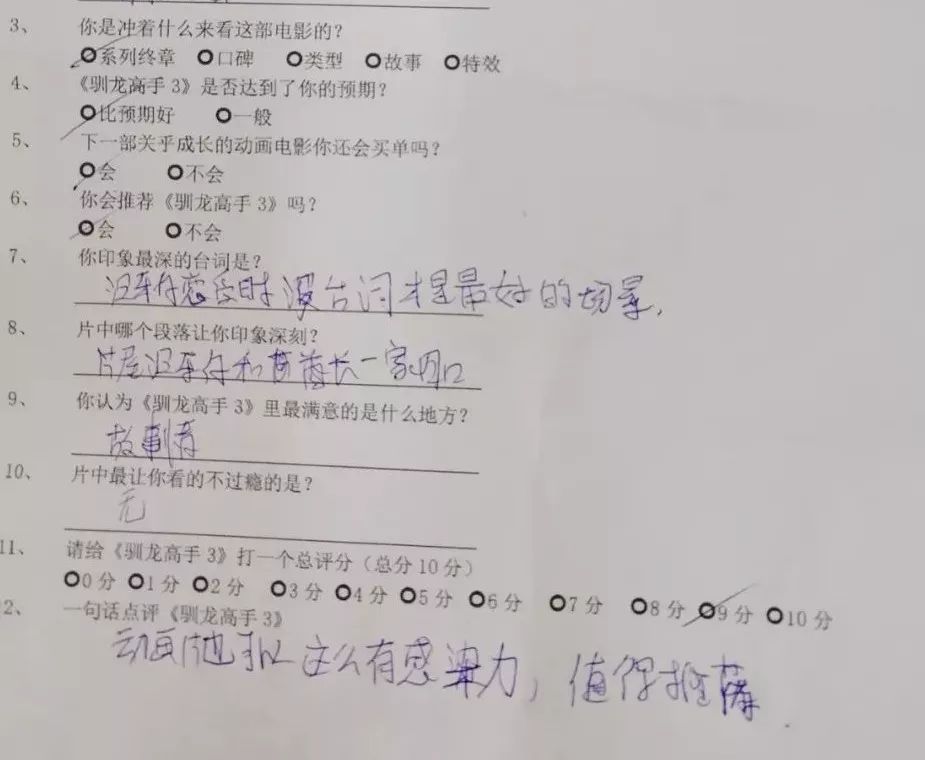 3、 你是冲着什么来看这部电影的？
○系列终章 ○口碑 ○类型 ○故事 ○特效
4、 《驯龙高手 3》是否达到了你的预期？
○比预期好 ○一般
5、 下一部关乎成长的动画电影你还会买单吗？
○会 ○不会
6、 你会推荐《驯龙高手 3》吗？
○会 ○不会
7、 你印象最深的台词是？
没牙仔恋爱时 没台词才是最好的场景，
8、 片中哪个段落让你印象深刻？
片尾没牙仔和酋长一家四口
9、 你认为《驯龙高手 3》里最满意的是什么地方？
故事
10、 片中最让你看的不过瘾的是？
无
11、 请给《驯龙高手 3》打一个总评分（总分 10 分）
○0 分 ○1 分 ○2 分 ○3 分 ○4 分 ○5 分 ○6 分 ○7 分 ○8 分 ○9 分 ○10 分
2、 一句话点评《驯龙高手 3》
动画片也可以这么有感染力，值得推荐